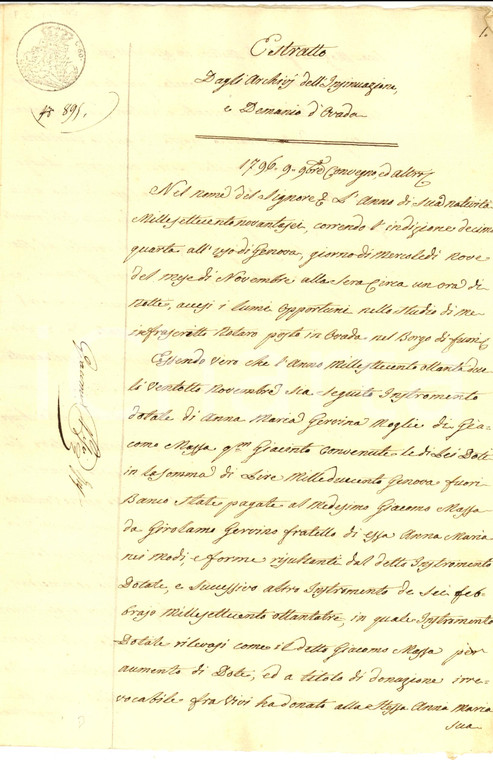 1.
Estratto
Dagli Archivj dell'Insinuazione,
e Demanio d'Ovada
895.
1796. 9. 9bre Convegno, ed altro
Nel nome del Signore L'Anno di sua natività
Millesettecentonovantasei, correndo l'indizione decima
quarta all'uso di Genova, giorno di mercoledì nove
del mese di Novembre alla sera circa un ora di
notte, accesi i lumi opportuni nello studio di me
infrascritto Notaro posto in Ovada nel Borgo di fuori
Essendo vero che l'Anno Millesettecento ottantadue
li ventotto novembre sia seguito Instromento
dotale di Anna Maria Gervina Moglie di Gia-
como Massa qm Giacinto convenute le di Lei Doti
in la somma di Lire Milleduecento Genova fuori
Banco state pagate al medesimo Giacomo Massa
da Girolamo Gervino fratello di essa Anna Maria
nei modi e forme risultanti dal detto Instromento
Dotale, e successivo altro Instromento de sei feb-
brajo Millesettecento ottantatre, in quale Instromento
Dotale rilevasi come il detto Giacomo Massa per
aumento di Dote, ed a titolo di donazione irre-
vocabile fra vivi ha donato alla stessa Anna Maria
sua